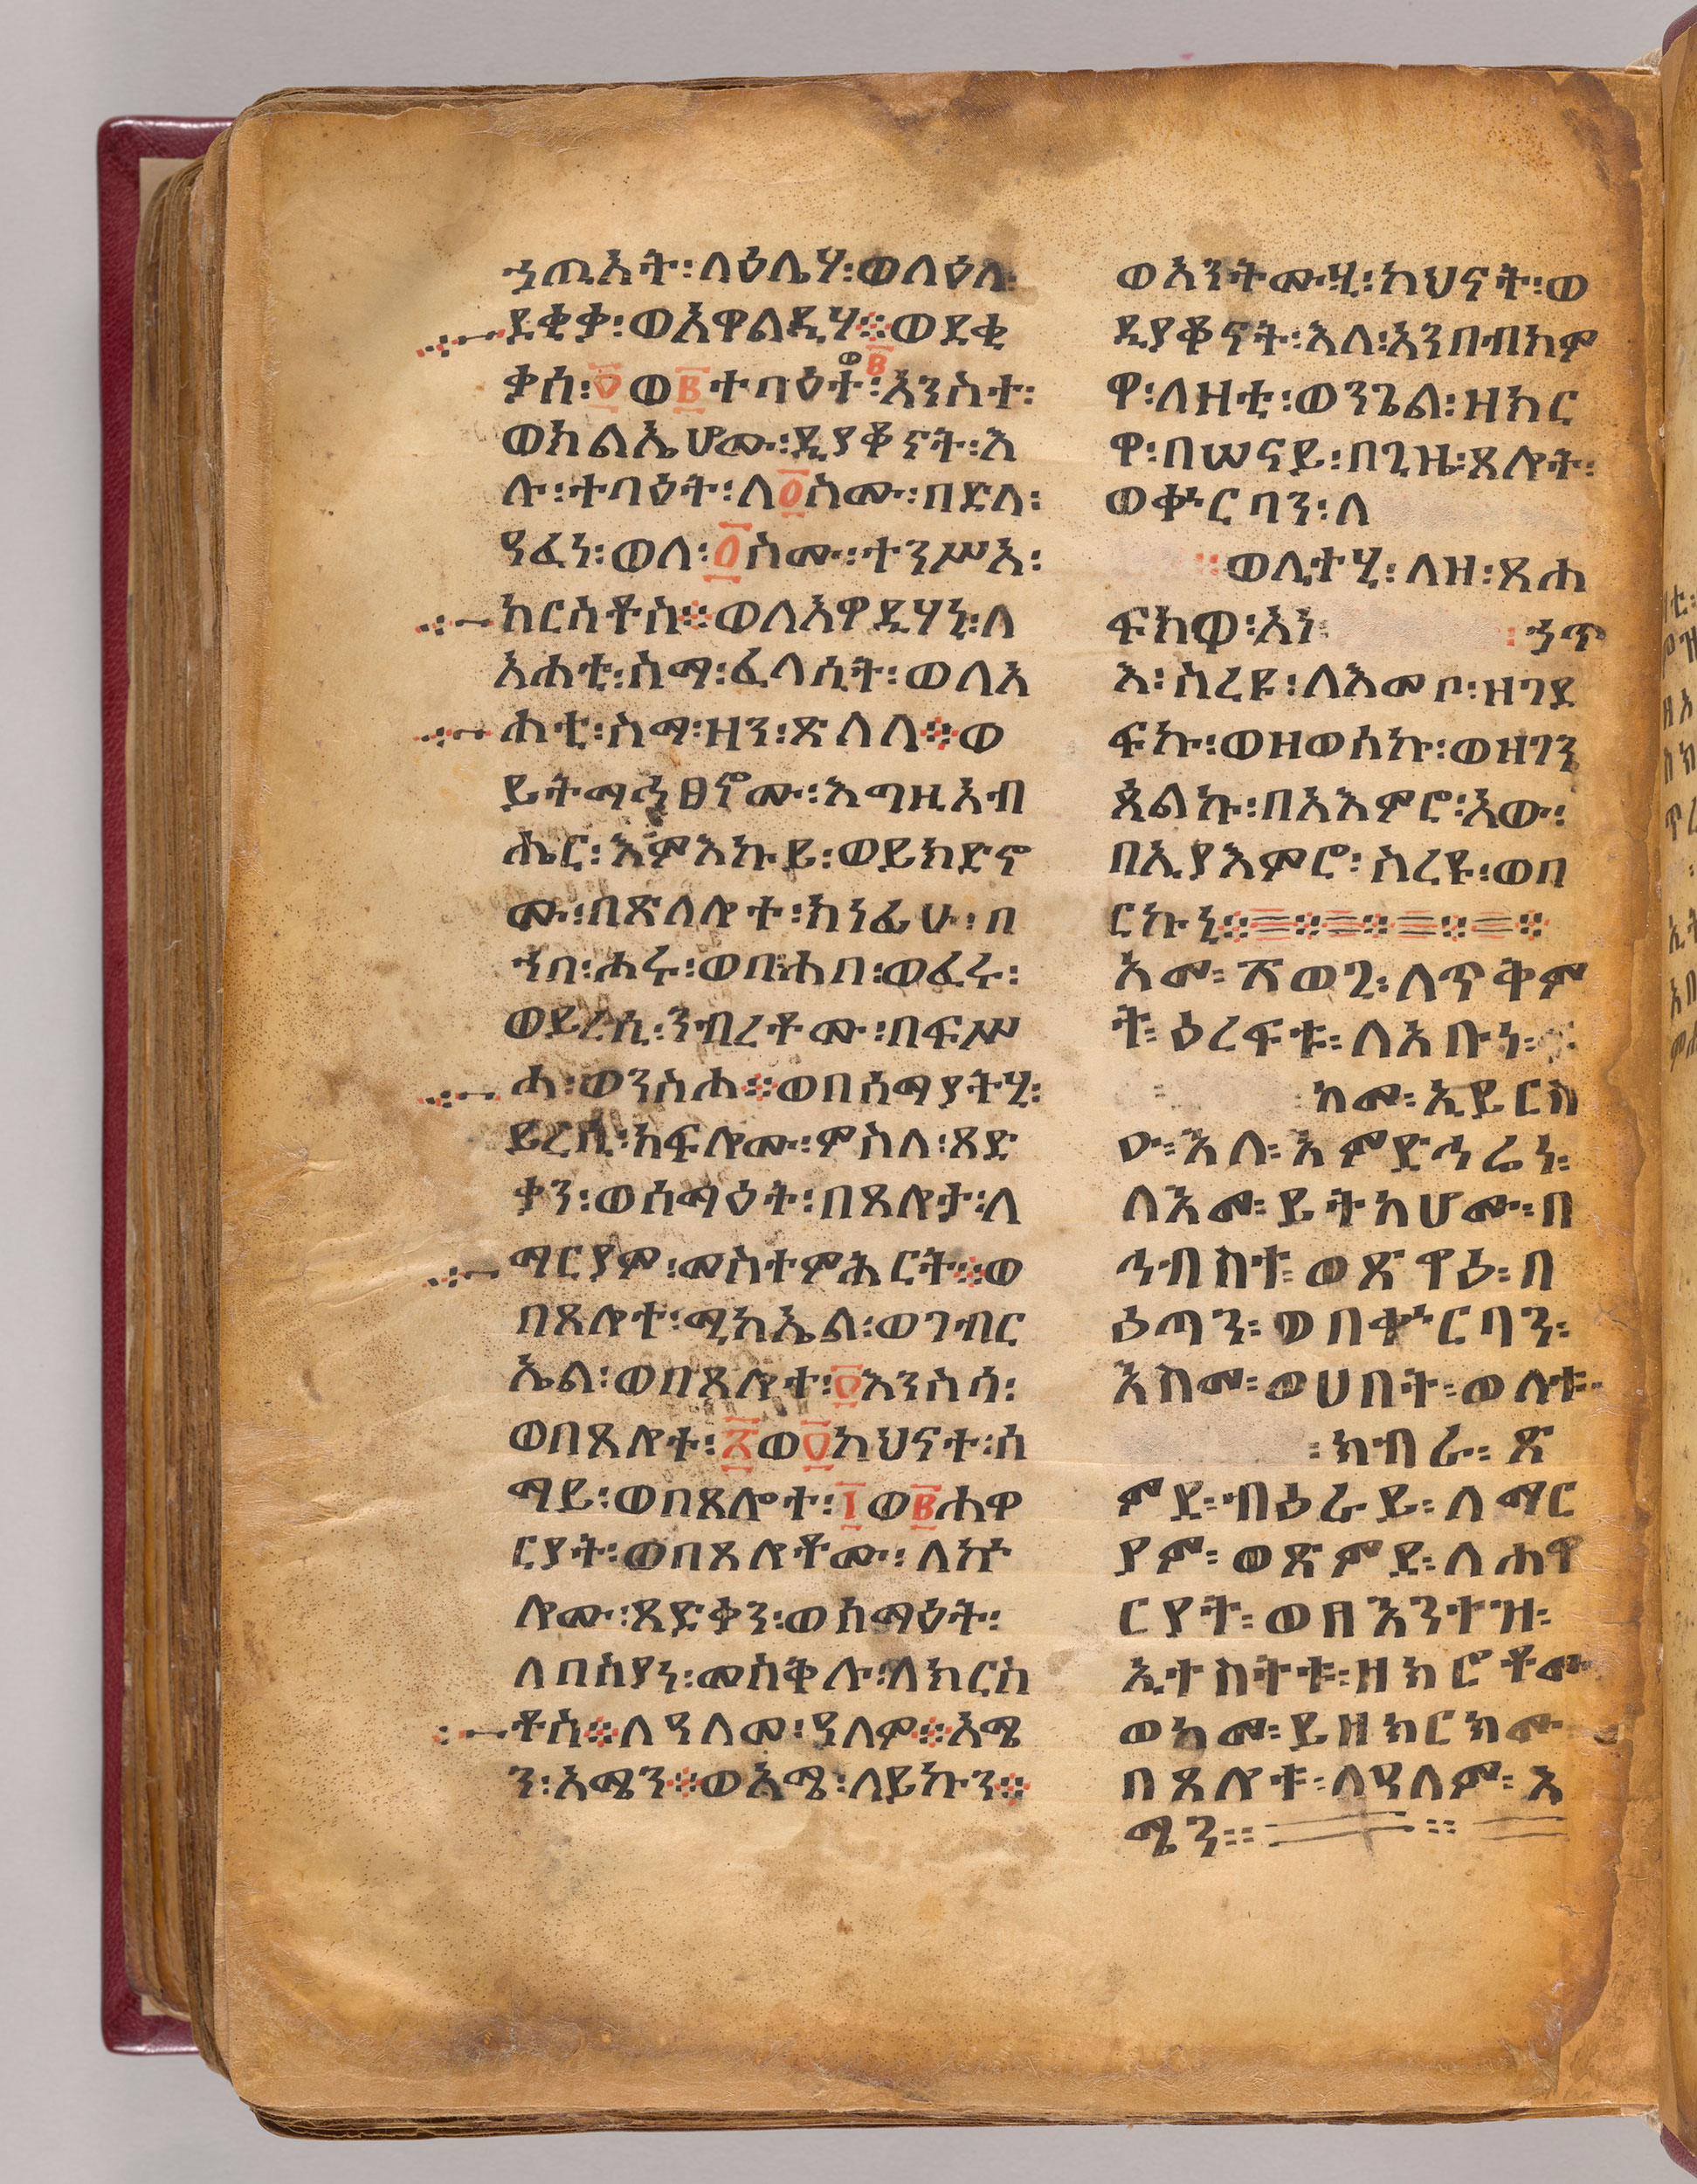 ኃጢአት፡ለዕሌሃ፡ወለዕለ፡
ደቂቃ፡ወአዋልዲሃ፨ወደቂ
ቃሰ፡፬ወ፪ተባዕት፡ወ፪አንስተ፡
ወክልኤሆሙ፡ዲያቆናት፡እ
ሉ፡ተባዕት፡ለ፩ስሙ፡በድለ፡
ዓፈነ፡ወለ፡፩ስሙ፡ተንሥአ፡
ክርስቶስ፨ወለአዋዲሃኒ፡ለ
አሐቲ፡ስማ፡ፈላሲት፡ወለአ
ሐቲ፡ስማ፡ዘን፡ጽለለ፨ወ
ይትማኅፀኖሙ፡እግዚአብ
ሔር፡እምእኩይ፡ወይክድኖ
ሙ፡በጽለሎተ፡ክነፊሁ፡በ
ኀበ፡ሐሩ፡ወበሐበ፡ወፈሩ፡
ወይረሲ፡ንብረቶሙ፡በፍሥ
ሐ፡ወንስሐ፨ወበሰማያትሂ፡
ይረሲ፡ክፍሎሙ፡ምስለ፡ጻድ
ቃን፡ወሰማዕት፡በጸሎታ፡ለ
ማርያም፡መስተምሕርት፨ወ
በጸሎተ፡ሚካኤል፡ወገብር
ኤል፡ወበጸሎተ፡፬እንስሳ፡
ወበጸሎተ፡፳ወ፬ካህናተ፡ሰ
ማይ፡ወበጸሎተ፡፲ወ፪ሐዋ
ርያት፡ወበጸሎቶሙ፡ለኵ
ሎሙ፡ጻድቃን፡ወሰማዕት፡
ለበስያነ፡መስቅሉ፡ለክርስ
ቶስ፨ለዓለመ፡ዓለም፨አሜ
ን፡አሜን፨ወአሜ፡ለይኩን፨
ወአንትሙሂ፡ካህናት፡ወ
ዲያቆናት፡እለ፡አንበብክም
ዋ፡ለዛቲ፡ወንጌል፡ዘክር
ዋ፡በሠናይ፡በጊዜ፡ጸሎት፡
ወቍርባን፡ለ
፡፡ወሊተሂ፡ለዘ፡ጸሐ
ፍክዎ፡አነ፡ ፡ኃጥ
እ፡ስረዩ፡ለእመቦ፡ዘገደ
ፍኩ፡ወዘወሰኩ፡ወዘገን
ጸልኩ፡በአእምሮ፡አው፡
በኢያእምሮ፡ስረዩ፡ወባ
ርኩኒ፨፨፨፨፨፨
አመ፡፳ወ፯፡ለጥቅም
ት፡ዕረፍቱ፡ለአቡነ፡
ከመ፡ኢይርስ
ዑ፡እለ፡እምድኅሬነ፡
ለእመ፡ይትከሆሙ፡በ
ኅብስት፡ወጽዋዕ፡በ
ዕጣን፡ወበቍርባን፡
እስመ፡ወሀበት፡ወሉቱ፡
፡ክብራ፡ጽ
ምደ፡ብዕራይ፡ለማር
ያም፡ወጽምደ፡ለሐዋ
ርያት፡ወበእንተዝ፡
ኢተስትቱ፡ዘክሮቶሙ
ወከመ፡ይዘክርክሙ
በጸሎቱ፡ለዓለም፡አ
ሜን፡፡ ፡፡